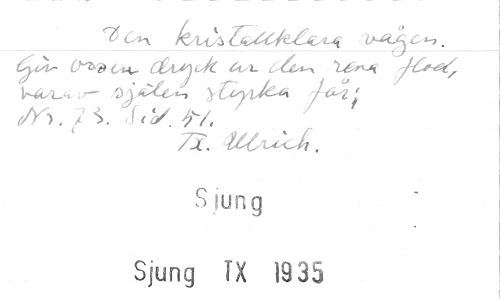 Den kristallklara vågen.
Giv oss en dryck ur den rena flod,
varav själen styrka får;
Nr. 73. Sid. 51.
Tx. Ullrich.
Sjung
Sjung TX 1935